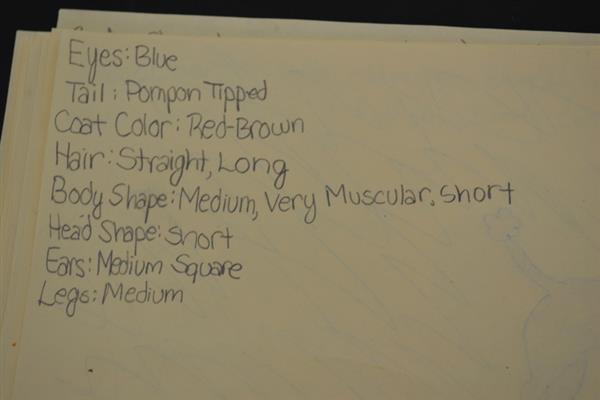 Eyes: Blue
Tail: Pompon Tipped
Coat Color: Red-Brown
Hair: Straight, Long
Body Shape: Medium, Very Muscular, Short
Head Shape: Short
Ears: Medium Square
Legs: Medium